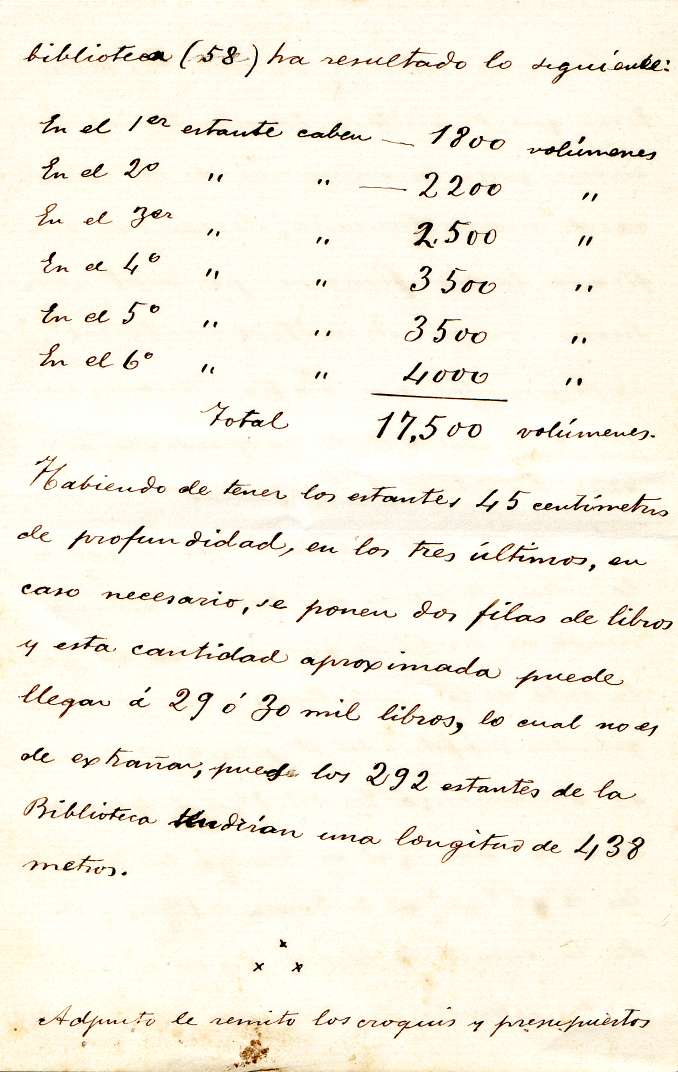 biblioteca (58) ha resultado lo siguiente:
En el 1er estante caben — 1800 volúmenes
En el 2º " " — 2200 "
En el 3er " " 2.500 "
En el 4º " " 3500 "
En el 5º " " 3500 "
En el 6º " " 4000 "
Total 17,500 volúmenes.
Habiendo de tener los estantes 45 centímetros
de profundidad, en los tres últimos, en
caso necesario, se ponen dos filas de libros
y esta cantidad aproximada puede
llegar á 29 ó 30 mil libros, lo cual no es
de extrañar, pues los 292 estantes de la
Biblioteca tendrían una longitud de 438
metros.
x
x x
Adjunto le remito los croquis y presupuestos